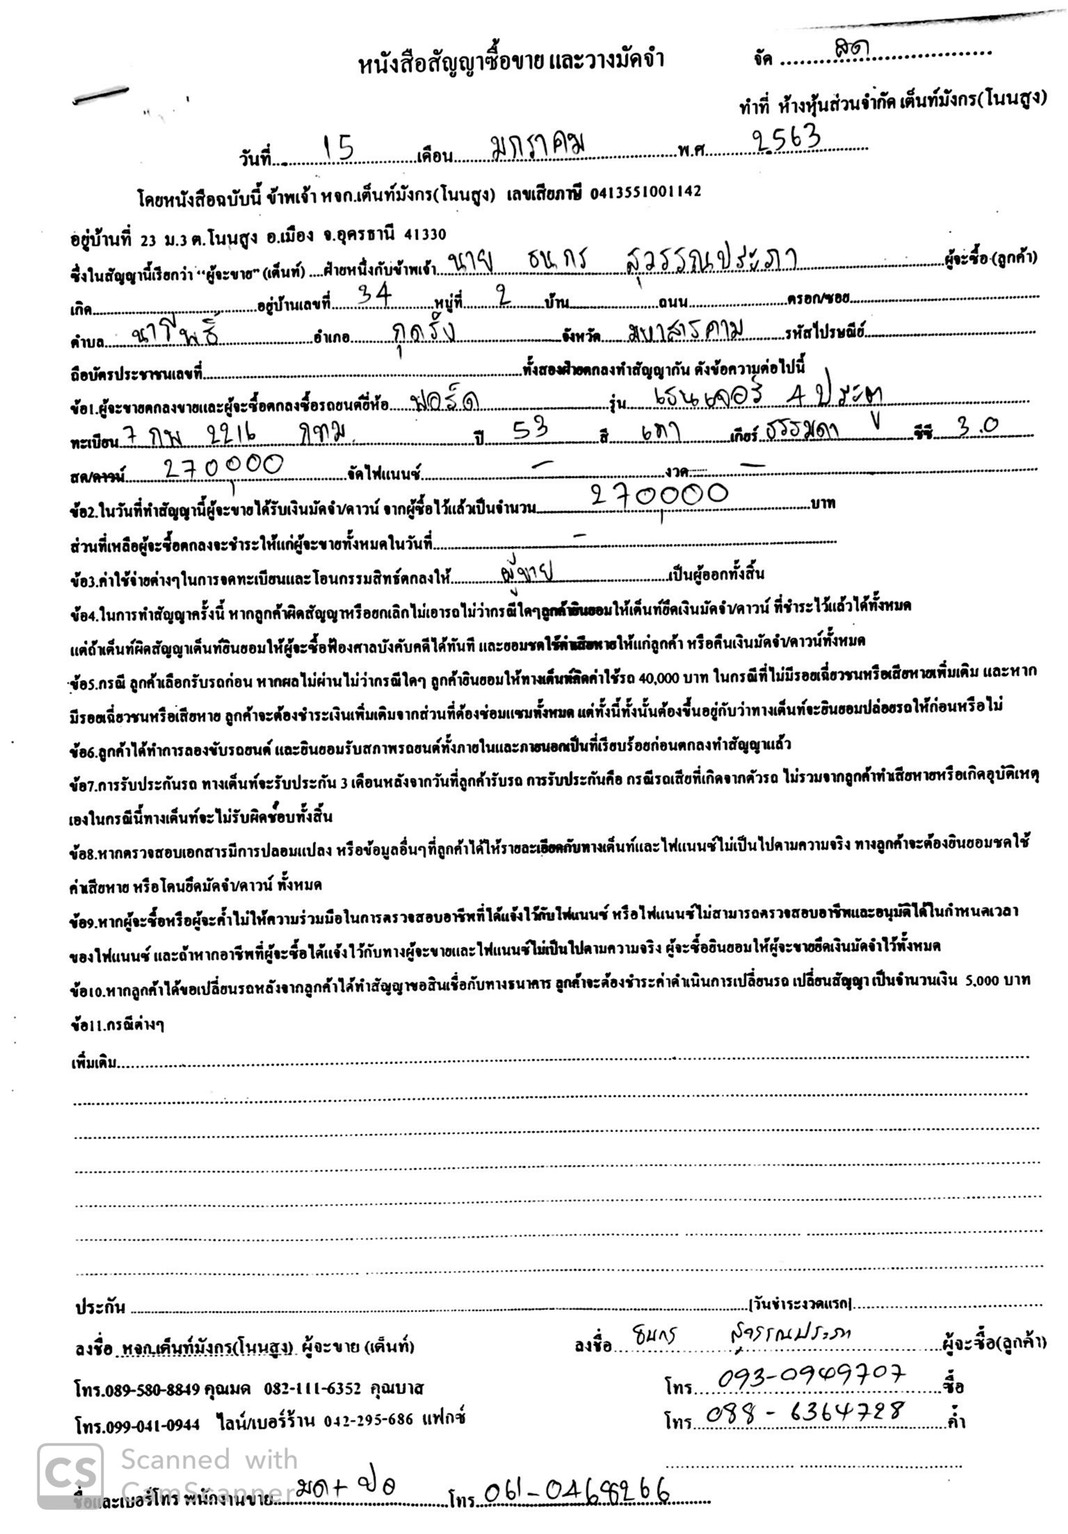 หนังสือสัญญาซื้อขาย และวางมัดจำ
จัด ....สด....
ทำที่ ห้างหุ้นส่วนจำกัด เต็นท์มังกร(โนนสูง)
วันที่....15....เดือน....มกราคม....พ.ศ....2563....
โดยหนังสือฉบับนี้ ข้าพเจ้า หจก.เต็นท์มังกร(โนนสูง) เลขเสียภาษี 0413551001142
อยู่บ้านที่ 23 ม.3 ต.โนนสูง อ.เมือง จ.อุดรธานี 41330
ซึ่งในสัญญานี้เรียกว่า "ผู้จะขาย" (เต็นท์) ....ฝ่ายหนึ่งกับข้าพเจ้า..นาย ธนกร สุวรรณประภา....ผู้จะซื้อ (ลูกค้า)
เกิด....อยู่บ้านเลขที่....34....หมู่ที่....2....บ้าน....ถนน....ตรอก/ซอย....
ตำบล....นาโพธิ์....อำเภอ....กุดรัง....จังหวัด....มหาสารคาม....รหัสไปรษณีย์....
ถือบัตรประชาชนเลขที่....ทั้งสองฝ่ายตกลงทำสัญญากัน ดังข้อความต่อไปนี้
ข้อ1.ผู้จะขายตกลงขายและผู้จะซื้อตกลงซื้อรถยนต์ยี่ห้อ....ฟอร์ด....รุ่น....เรนเจอร์ 4 ประตู
ทะเบียน 7 กพ 2216 กทม. ปี 53 สี เทา เกียร์ ธรรมดา ซีซี 3.0
สด/ดาวน์....270,000....จัดไฟแนนซ์....–....งวด....–....
ข้อ2.ในวันที่ทำสัญญานี้ผู้จะขายได้รับเงินมัดจำ/ดาวน์ จากผู้ซื้อไว้แล้วเป็นจำนวน....270,000....บาท
ส่วนที่เหลือผู้จะซื้อตกลงจะชำระให้แก่ผู้จะขายทั้งหมดในวันที่....–....
ข้อ3.ค่าใช้จ่ายต่างๆในการจดทะเบียนและโอนกรรมสิทธ์ตกลงให้....ผู้ขาย....เป็นผู้ออกทั้งสิ้น
ข้อ4.ในการทำสัญญาครั้งนี้ หากลูกค้าผิดสัญญาหรือยกเลิกไม่เอารถไม่ว่ากรณีใดๆลูกค้ายินยอมให้เต็นท์ยึดเงินมัดจำ/ดาวน์ ที่ชำระไว้แล้วได้ทั้งหมด
แต่ถ้าเต็นท์ผิดสัญญาเต็นท์ยินยอมให้ผู้จะซื้อฟ้องศาลบังคับคดีได้ทันที และยอมชดใช้ค่าเสียหายให้แก่ลูกค้า หรือคืนเงินมัดจำ/ดาวน์ทั้งหมด
ข้อ5.กรณี ลูกค้าเลือกรับรถก่อน หากผลไม่ผ่านไม่ว่ากรณีใดๆ ลูกค้ายินยอมให้ทางเต็นท์คิดค่าใช้รถ 40,000 บาท ในกรณีที่ไม่มีรอยเฉี่ยวชนหรือเสียหายเพิ่มเติม และหาก
มีรอยเฉี่ยวชนหรือเสียหาย ลูกค้าจะต้องชำระเงินเพิ่มเติมจากส่วนที่ต้องซ่อมแซมทั้งหมด แต่ทั้งนี้ทั้งนั้นต้องขึ้นอยู่กับว่าทางเต็นท์จะยินยอมปล่อยรถให้ก่อนหรือไม่
ข้อ6.ลูกค้าได้ทำการลองขับรถยนต์ และยินยอมรับสภาพรถยนต์ทั้งภายในและภายนอกเป็นที่เรียบร้อยก่อนตกลงทำสัญญาแล้ว
ข้อ7.การรับประกันรถ ทางเต็นท์จะรับประกัน 3 เดือนหลังจากวันที่ลูกค้ารับรถ การรับประกันคือ กรณีรถเสียที่เกิดจากตัวรถ ไม่รวมจากลูกค้าทำเสียหายหรือเกิดอุบัติเหตุ
เองในกรณีนี้ทางเต็นท์จะไม่รับผิดชอบทั้งสิ้น
ข้อ8.หากตรวจสอบเอกสารมีการปลอมแปลง หรือข้อมูลอื่นๆที่ลูกค้าได้ให้รายละเอียดกับทางเต็นท์และไฟแนนซ์ไม่เป็นไปตามความจริง ทางลูกค้าจะต้องยินยอมชดใช้
ค่าเสียหาย หรือโดนยึดมัดจำ/ดาวน์ ทั้งหมด
ข้อ9.หากผู้จะซื้อหรือผู้จะค้ำไม่ให้ความร่วมมือในการตรวจสอบอาชีพที่ได้แจ้งไว้กับไฟแนนซ์ หรือไฟแนนซ์ไม่สามารถตรวจสอบอาชีพและอนุมัติได้ในกำหนดเวลา
ของไฟแนนซ์ และถ้าหากอาชีพที่ผู้จะซื้อได้แจ้งไว้กับทางผู้จะขายและไฟแนนซ์ไม่เป็นไปตามความจริง ผู้จะซื้อยินยอมให้ผู้จะขายยึดเงินมัดจำไว้ทั้งหมด
ข้อ10.หากลูกค้าได้ขอเปลี่ยนรถหลังจากลูกค้าได้ทำสัญญาขอสินเชื่อกับทางธนาคาร ลูกค้าจะต้องชำระค่าดำเนินการเปลี่ยนรถ เปลี่ยนสัญญา เป็นจำนวนเงิน 5,000 บาท
ข้อ11.กรณีต่างๆ
เพิ่มเติม....
ประกัน ....[วันชำระงวดแรก]....
ลงชื่อ หจก.เต็นท์มังกร(โนนสูง) ผู้จะขาย (เต็นท์)
ลงชื่อ ธนกร สุวรรณประภา ผู้จะซื้อ(ลูกค้า)
โทร.089-580-8849 คุณมด 082-111-6352 คุณบาส
โทร....093-0949707....ซื้อ
โทร.099-041-0944 ไลน์/เบอร์ร้าน 042-295-686 แฟกซ์
โทร....088-6364728....ค้ำ
CS Scanned with
CamScanner
ชื่อและเบอร์โทร พนักงานขาย....มด + ปอ....โทร. 061-0468266